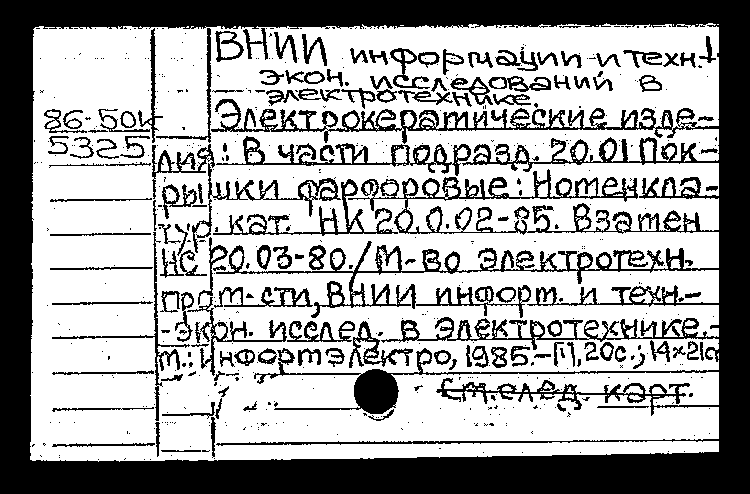 ВНИИ информации и техн.-
экон. исследований в
электротехнике.
86-50к Электрокерамические изде-
5325 лия: В части подразд. 20.01 Пок-
рышки фарфоровые: Номенкла-
тур. кат. НК 20.0.02-85. Взамен
НС 20.03-80./М-во электротехн.
пром-сти, ВНИИ информ. и техн.-
-экон. исслед. в электротехнике.-
М.: Информэлектро, 1985.-[1], 20с.; 14×21см
См.след. карт.